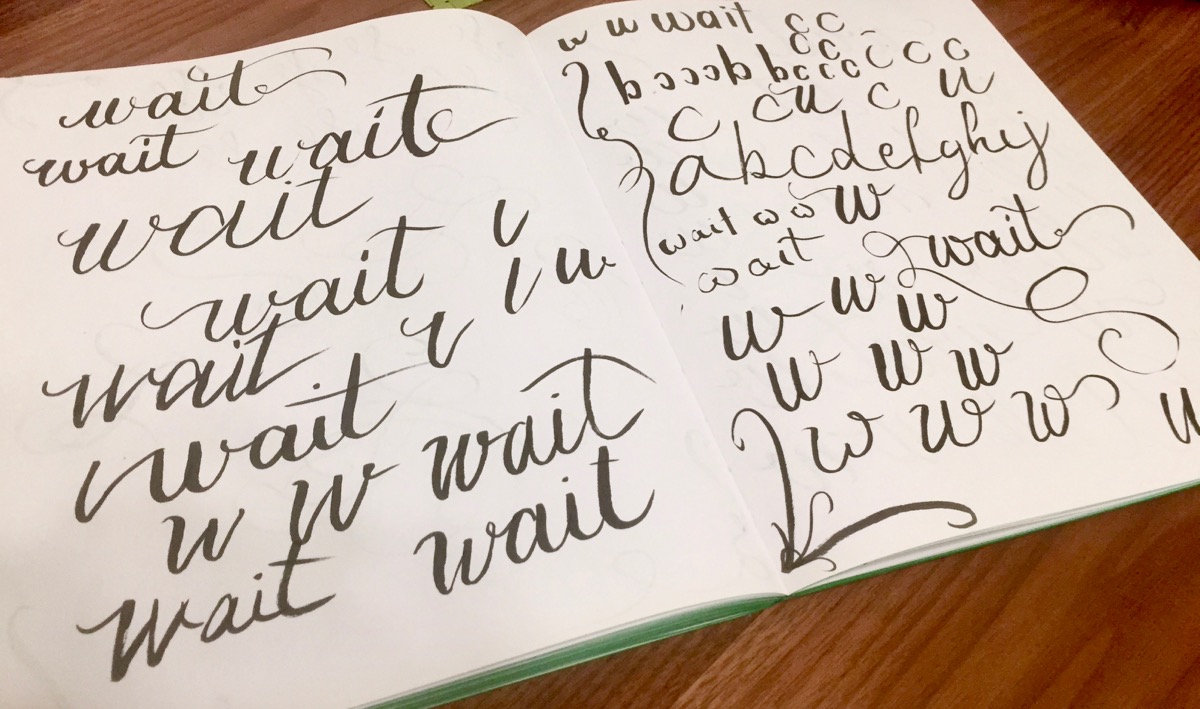 wait
wait wait
wait
wait
wait
wait
w w wait
wait wait
w u wait cc
cc
bccccb bccccccc
c cu c u
abcdefghij
wait w w w
wait wait
w w w
w w w
w w w